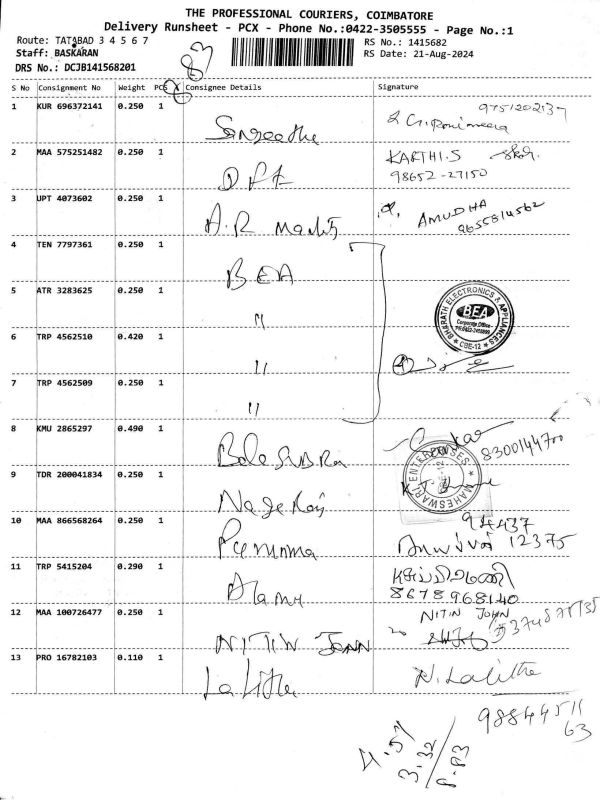 THE PROFESSIONAL COURIERS, COIMBATORE
Delivery Runsheet - PCX - Phone No.:0422-3505555 - Page No.:1
Route: TATABAD 3 4 5 6 7
RS No.: 1415682
Staff: BASKARAN
RS Date: 21-Aug-2024
DRS No.: DCJB141568201
83
S No Consignment No Weight PCS Consignee Details Signature
1 KUR 696372141 0.250 1 Sangeetha 9751202137
2 MAA 575251482 0.250 1 KARTHI.S
98652-27150
3 UPT 4073602 0.250 1 A.R AMUDHA
9655814562
4 TEN 7797361 0.250 1 BEA
5 ATR 3283625 0.250 1 "
BHARATH ELECTRONICS & APPLIANCES
BEA
Corporate Office
CBE-12
6 TRP 4562510 0.420 1 "
7 TRP 4562509 0.250 1 "
8 KMU 2865297 0.490 1 Bala SUBRA 8300144700
MAHESWARI ENTERPRISES
9 TDR 200041834 0.250 1 Nagaraj
10 MAA 866568264 0.250 1 94437
12375
11 TRP 5415204 0.290 1
8678968140
12 MAA 100726477 0.250 1 NITIN JOHN NITIN JOHN
13 PRO 16782103 0.110 1 Lalitha N. Lalitha
98844511
63
4.57
3.32